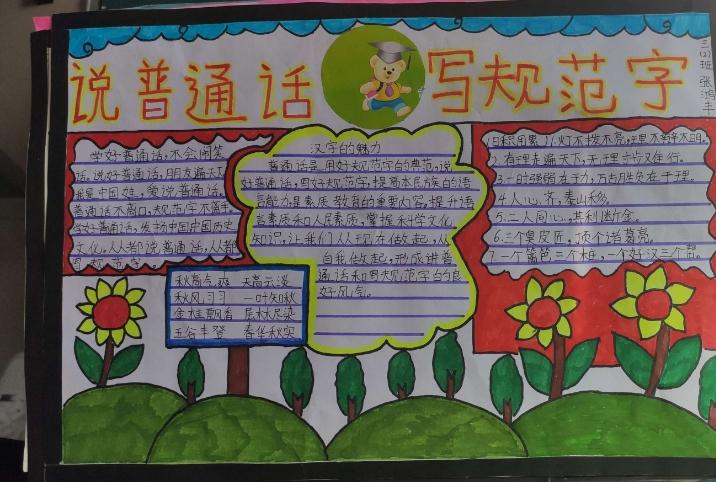 说普通话 写规范字
三(2)班 张鸿丰
学好普通话,不会闹笑
话,说好普通话,朋友遍天下
我是中国娃,爱说普通话,
普通话不离口,规范字不离手。
学好普通话,发扬中国历史
文化,人人都说普通话,人人都
写规范字
汉字的魅力
普通话是用好规范字的典范,说
好普通话,写好规范字,提高本民族的语
言能力是素质教育的重要内容,提升语
言素质和人民素质,掌握科学文化
知识,让我们从现在做起,从
自我做起,形成讲普
通话和写规范字的良
好风气。
1.日积月累
1.灯不拨不亮,理不辩不明。
2.有理走遍天下,无理寸步难行。
3.一时强弱在于力,万古胜负在于理。
4.人心齐,泰山移。
5.二人同心,其利断金。
6.三个臭皮匠,顶个诸葛亮。
7.一个篱笆三个桩,一个好汉三个帮。
秋高气爽 天高云淡
秋风习习 一叶知秋
金桂飘香 层林尽染
五谷丰登 春华秋实